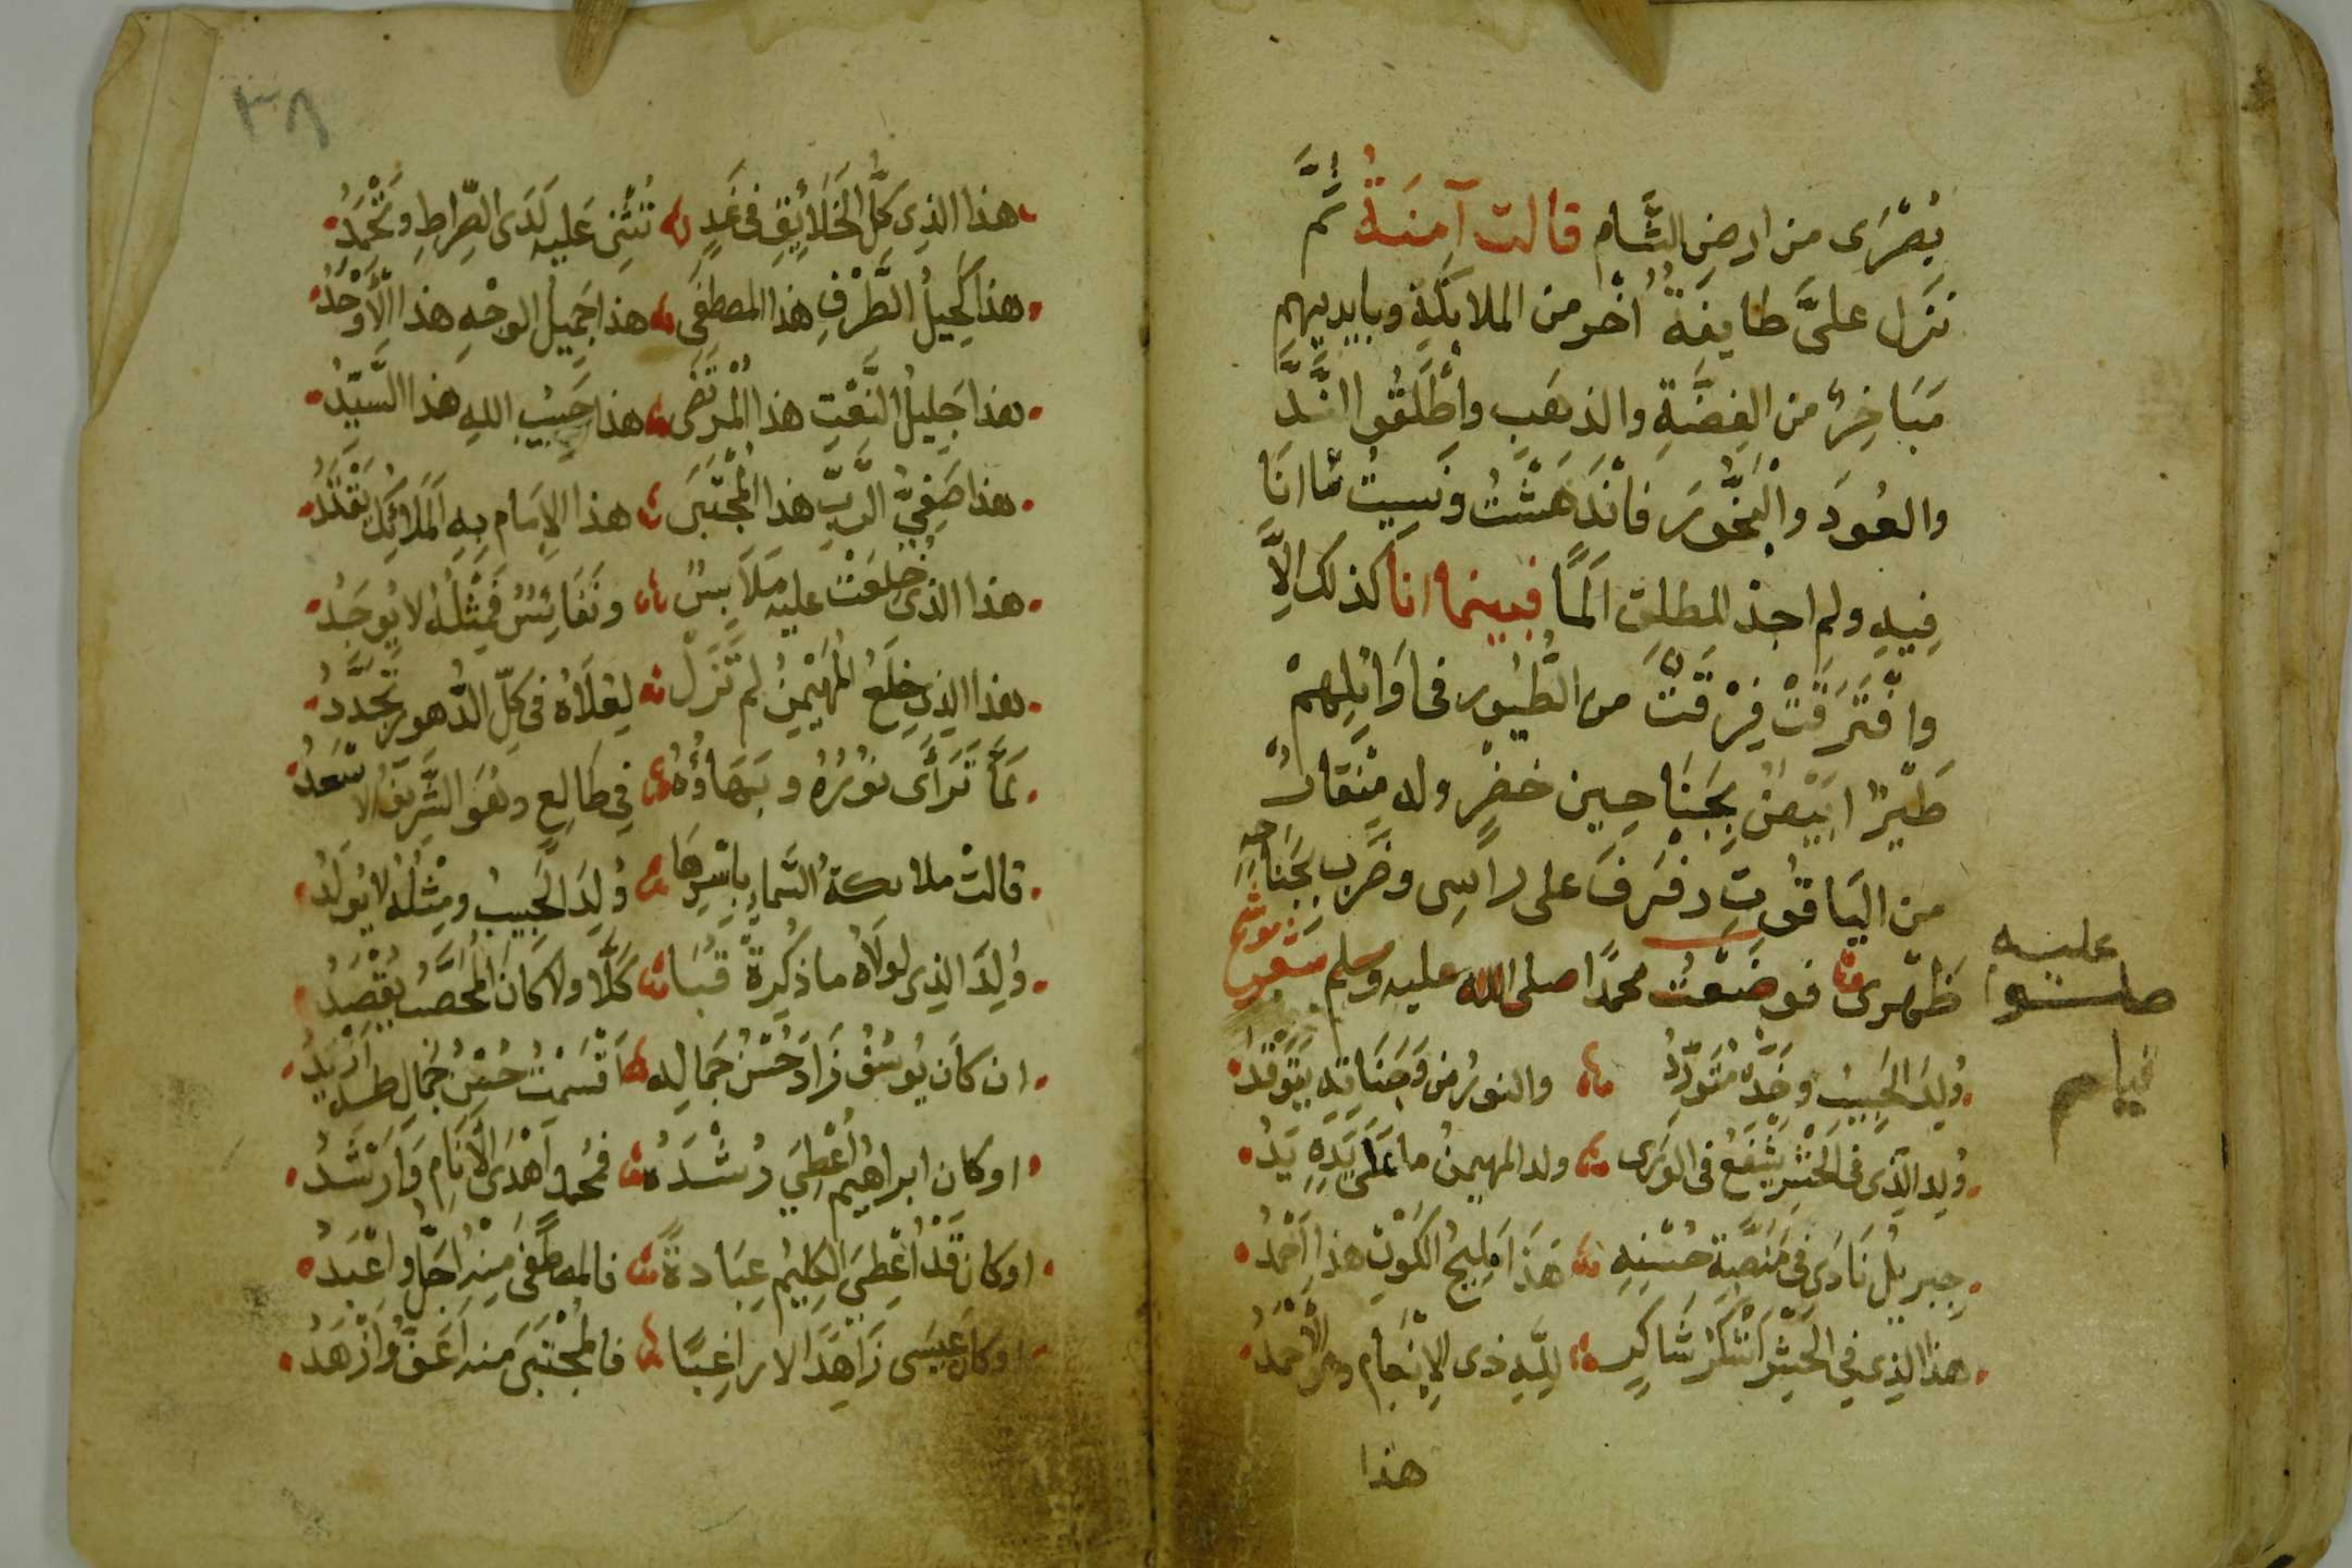 بُصْرَى من ارضِ الشَّام قالت آمِنَةُ ثُمَّ
نَزَل علىَّ طايفةٌ اُخْر من الملايكة وبايديهم
مَبَاخِرُ من الفِضَّةِ والذهَبِ واَطْلَقُوا النَّدَّ
والعُودَ والْبَخُّورَ فانْدَهَشْتُ ونَسِيتُ مَّا اَنَا
فِيهِ ولم اجدْ لِلطلِق اَلَمًا فبينما انا كذلك اِلاَّ
وافْتَرَقَتْ فِرْقَتٌ من الطُّيُور فى اَوَائِلِهمْ
طَيْرٌ ابْيَضٌ بِجَنَاحِين خضرٍ وله مِنْقَارٌ
من اليَاقُوتِ رفرَفَ على راسِى وضَرَب بِجَنَاحِهِ
ظَهْرى فوضَعْتُ محمدًا صلى الله عليه وسلم شعر موشح
عليه
صلوا
قيام
وُلِدَ الحَبِيبُ وخَدُّهُ مُتَوَرِّدُ والنورُ من وَجَنَاتِهِ يتَوَقَّدُ
وُلِد الذى فى الحَشْرِ يَشْفَعُ فى الوَرَى ولد المهيمنُ ما عَلَى يَدِهِ يَدُ
جِبريلُ نَادَى فى مَنَصَّةِ حُسْنِهِ هَذَا مَلِيحُ الكَوْنِ هذا اَحْمَدُ
هذا الذى فى الحَشْرِ اَشْكَرُ شَاكِرٍ لِلّهِ ذى الاِنْعَام
هذا
٣٨
هذا الذى كلُّ الخَلاَئِقِ فى غَدٍ تُثْنِى عَليه لَدَى الصِّراطِ وتَحْمَدُ
هذا كَحِيلُ الطَّرْفِ هذا المصطفَى هذا جَمِيلُ الوجْهِ هذا الأَوْحَدُ
هذا جَلِيلُ النَّعْتِ هذا الْمُرْتَضَى هذا حَبِيبُ اللهِ هذا السَّيِّدُ
هذا صَفِىُّ الرَّبِّ هذا الْمُجْتَبَى هذا الاِمَام بِهِ الْمَلاَئِكُ تقْتَدُ
هذا الذى خُلِعَتْ عليه مَلاَبِسٌ ونَفَائِسٌ فَمِثْلُهُ لا يُوجَدُ
هذا الذى خِلَعُ المُهَيْمِنُ لم تَزَلْ لِعُلاَهُ فى كلِّ الدُّهورِ تُجَدَّدُ
لَمَّا تَرَأَى نُورُهُ وبَهَاؤُهُ فى طَالِعٍ وهُوَ الشَّرِيفُ الاَسْعَدُ
قالتْ ملايكةُ السَّماءِ بِاَسْرِهَا وُلِدَ الحَبِيبُ ومِثْلُهُ لا يُولَدُ
وُلِدَ الذى لولاَهُ ما ذُكِرَةْ قُبَا كَلَّا ولا كانَ المُحَصَّبُ يُقْصَدُ
ان كانَ يُوسُفُ زَادَ حُسْنُ جَمَالِه اَقْسَمْتُ حُسْنُ جَمال طه اَزْيَدُ
او كان ابراهيمُ اُعْطِىَ رُشْدَهُ فمُحمد اَهْدَى الأَنَامِ وَاَرْشَدُ
او كان قَدْ اُعْطِىَ الكَلِيمُ عِبَادةً فالمصطفَى مِنْهُ اَجَلُّ واَعْبَدُ
او كان عِيسَى زَاهِدًا لا راغِبًا فالمُجْتَبَى منه اَعَفُّ واَزْهَدُ